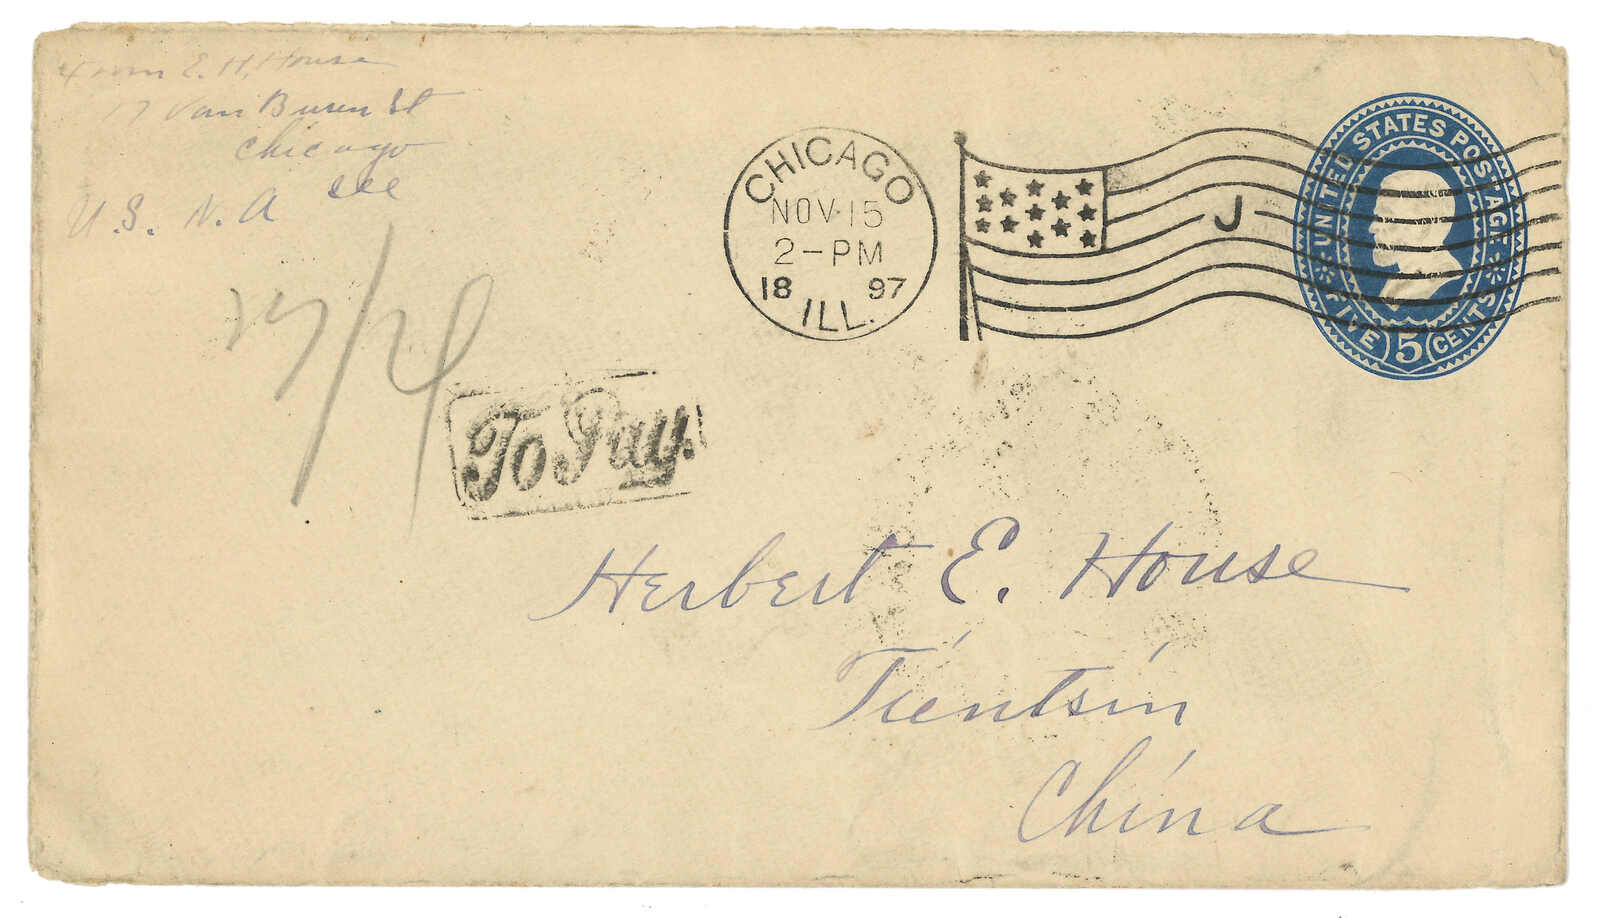 From E. H. House
17 Van Buren St
Chicago
Ill
U.S. N.A
CHICAGO
NOV 15
2-PM
18 97
ILL.
J
UNITED STATES POSTAGE
FIVE 5 CENTS
To Pay.
Herbert E. House
Tientsin
China